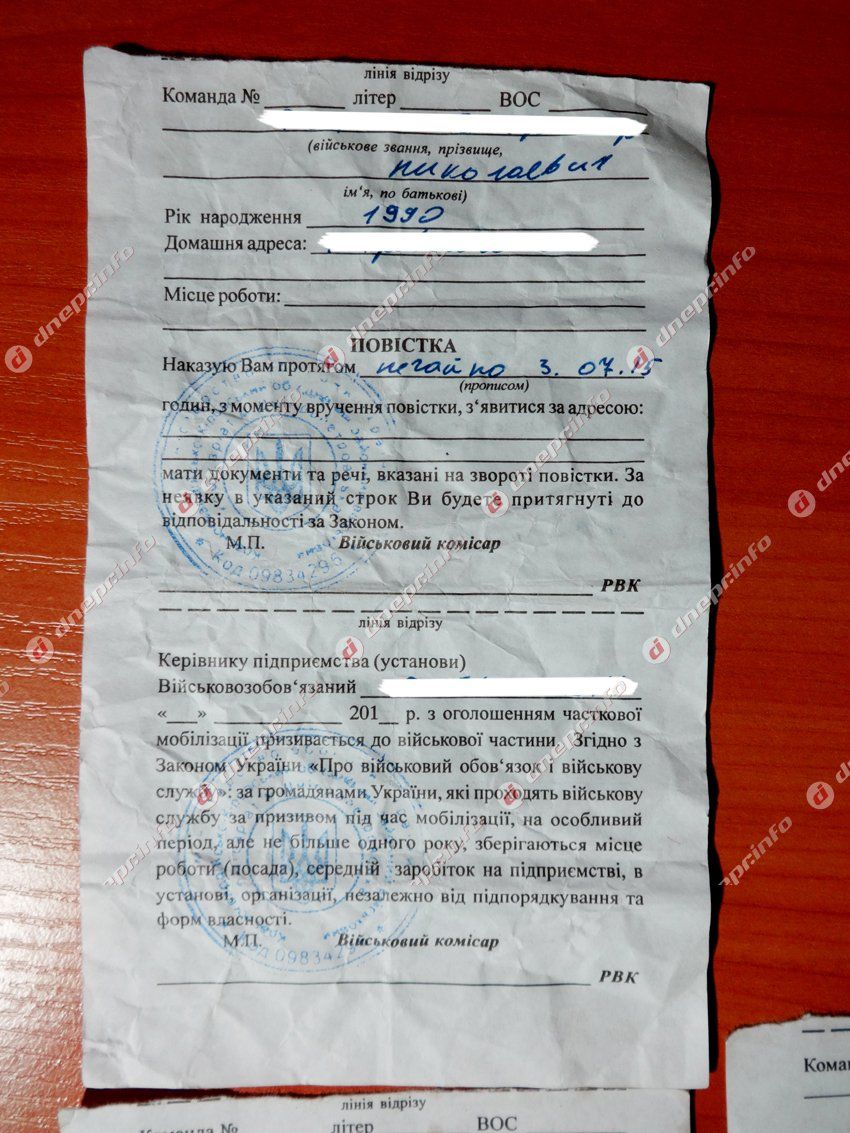 лінія відрізу
Команда № літер ВОС
(військове звання, прізвище,
николаевич
ім'я, по батькові)
Рік народження 1990
Домашня адреса:
Місце роботи:
ПОВІСТКА
Наказую Вам протягом негайно 3. 07. 15
(прописом)
годин, з моменту вручення повістки, з'явитися за адресою:
мати документи та речі, вказані на звороті повістки. За
неявку в указаний строк Ви будете притягнуті до
відповідальності за Законом.
М.П. Військовий комісар
Код 09834296
РВК
лінія відрізу
Керівнику підприємства (установи)
Військовозобов'язаний
«__» ____________ 201__ р. з оголошенням часткової
мобілізації призивається до військової частини. Згідно з
Законом України «Про військовий обов'язок і військову
службу»: за громадянами України, які проходять військову
службу за призивом під час мобілізації, на особливий
період, але не більше одного року, зберігаються місце
роботи (посада), середній заробіток на підприємстві, в
установі, організації, незалежно від підпорядкування та
форм власності.
М.П. Військовий комісар
РВК
лінія відрізу
Команда № літер ВОС
Кома
dnepr.info
dnepr.info
dnepr.info
dnepr.info
dnepr.info
dnepr.info
dnepr.info